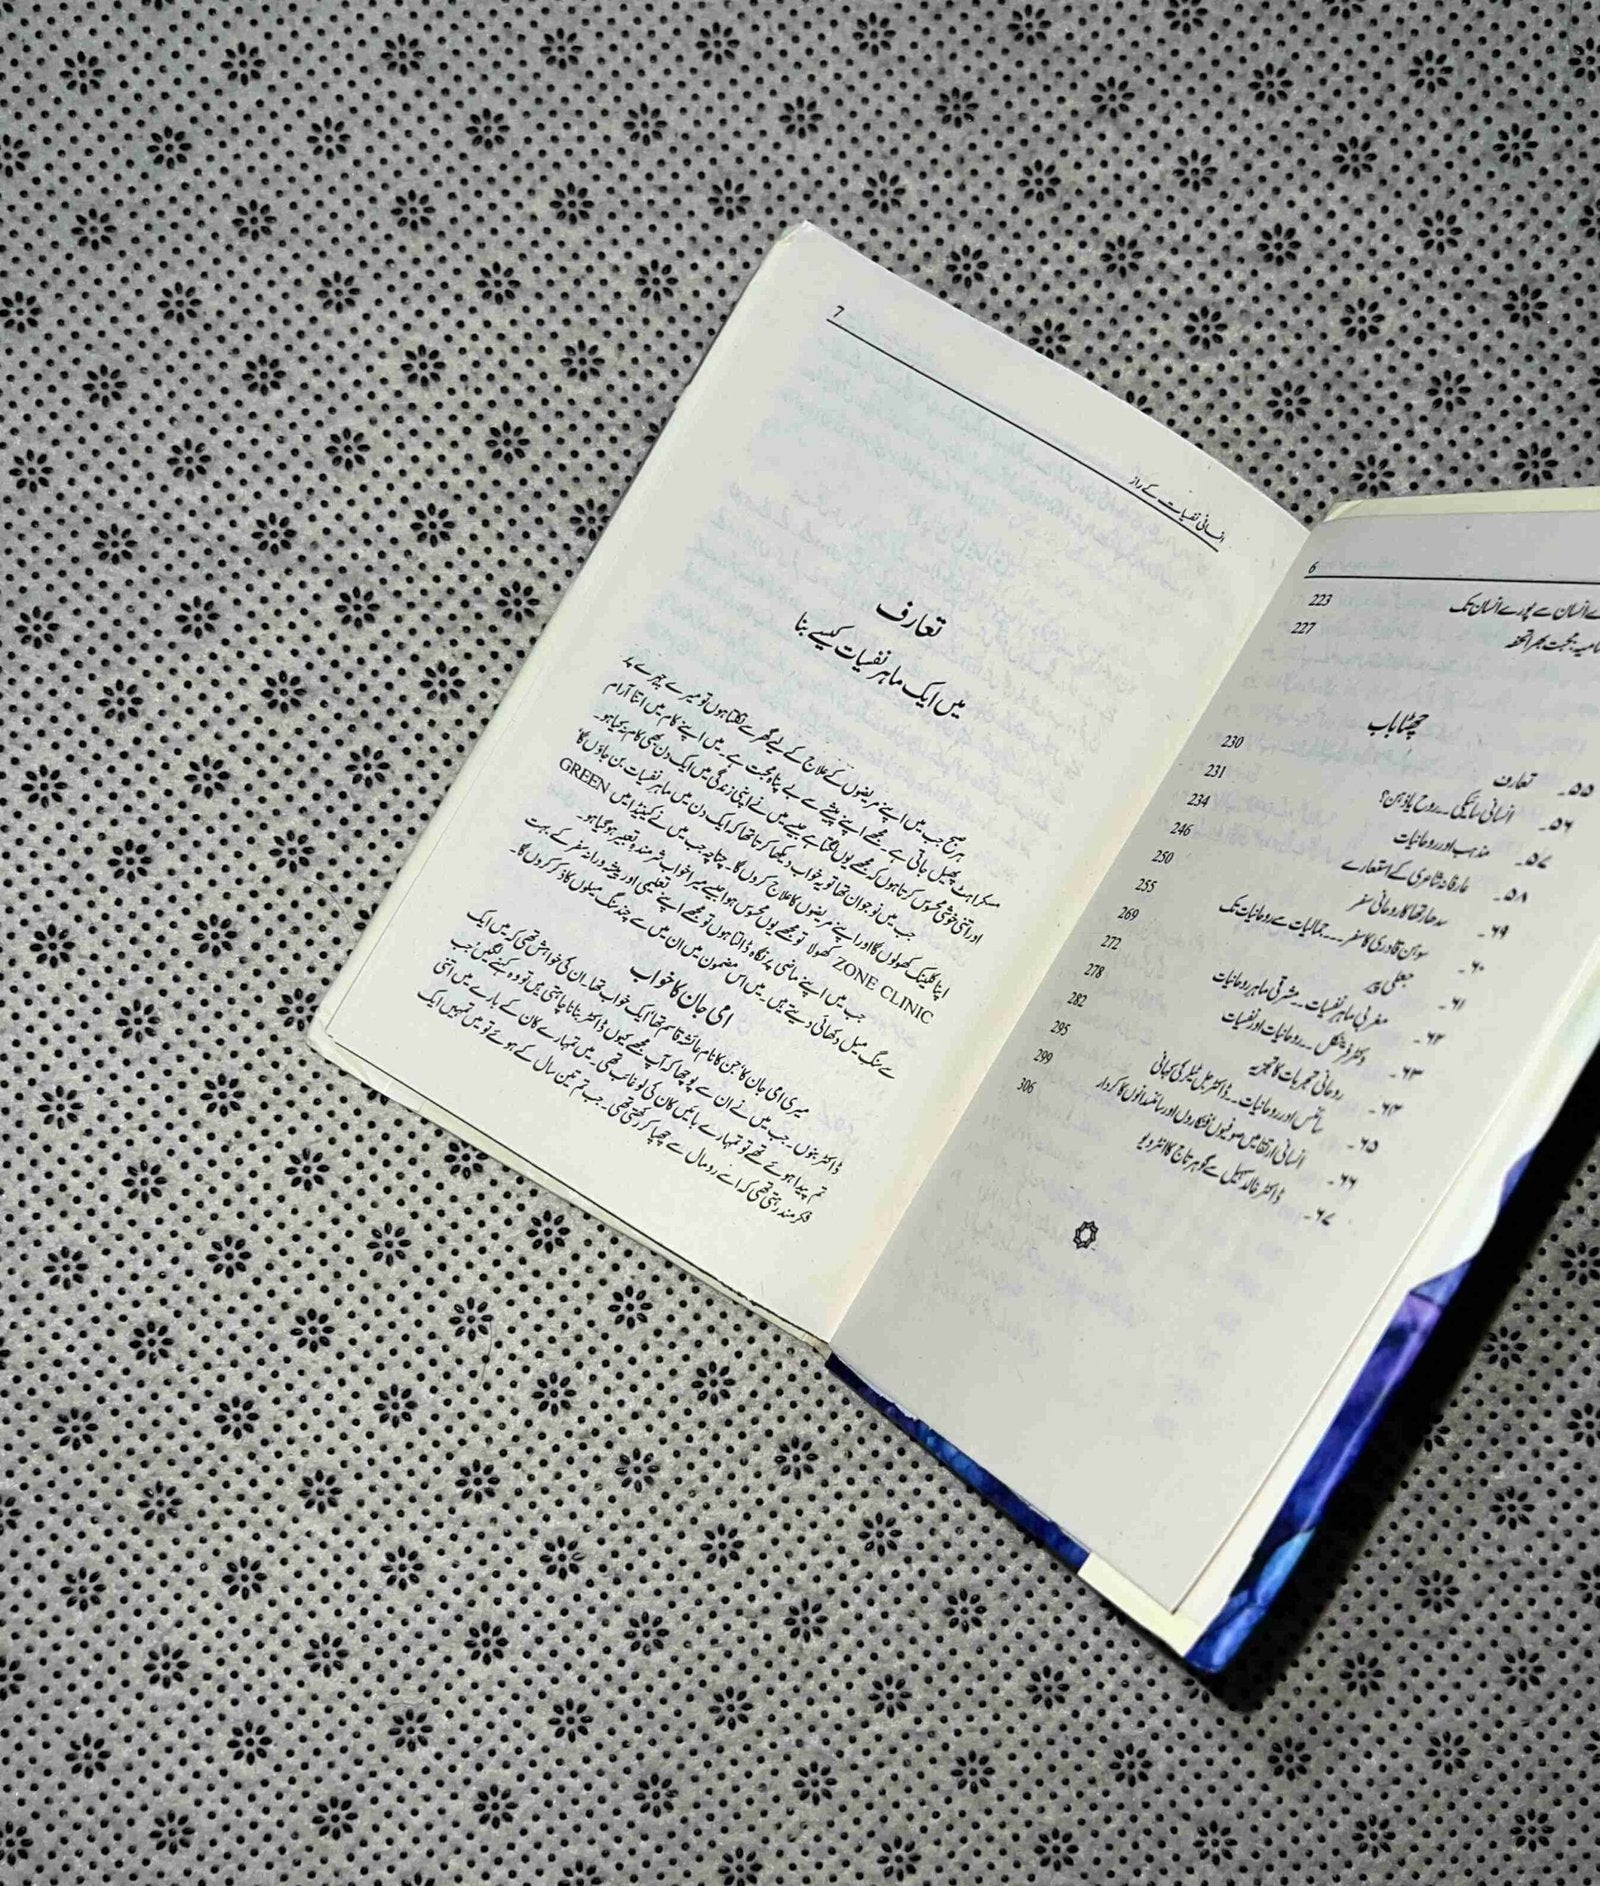 6
ے انسان سے پورے انسان تک 223
محبت بھرا تحفہ 227
چھٹا باب
۵۵۔ تعارف 230
۵۶۔ انسانی سائیکی۔۔روح یا ذہن؟ 231
۵۷۔ مذہب اور روحانیات 234
۵۸۔ عارفانہ شاعری کے استعارے 246
۶۹۔ سدھارتھا کا روحانی سفر 250
۶۰۔ سوہن قادری کا سفر۔۔۔جمالیات سے روحانیات تک 255
۶۱۔ جعلی پیر 269
۶۲۔ مغربی ماہر نفسیات۔۔مشرقی ماہر روحانیات 272
۶۳۔ وکٹر فرینکل۔۔روحانیات اور نفسیات 278
۶۴۔ روحانی تجربات کا تجزیہ 282
۶۵۔ سائنس اور روحانیات۔۔ڈاکٹر جل ٹیلر کی کہانی 295
۶۶۔ انسانی ارتقا میں صوفیوں، فنکاروں اور سائنسدانوں کا کردار 299
۶۷۔ ڈاکٹر خالد سہیل سے گوہر تاج کا انٹرویو 306
انسانی نفسیات کے راز 7
تعارف
میں ایک ماہر نفسیات کیسے بنا
ہر صبح جب میں اپنے مریضوں کے علاج کے لیے گھر سے نکلتا ہوں تو میرے چہرے پہ
مسکراہٹ پھیل جاتی ہے۔ مجھے اپنے پیشے سے بے پناہ محبت ہے۔ میں اپنے کام میں اتنا آرام
اور اتنی خوشی محسوس کرتا ہوں کہ مجھے یوں لگتا ہے جیسے میں نے اپنی زندگی میں ایک دن بھی کام نہ کیا ہو۔
جب میں نوجوان تھا تو یہ خواب دیکھا کرتا تھا کہ ایک دن میں ماہر نفسیات بن جاؤں گا'
اپنا کلینک کھولوں گا اور اپنے مریضوں کا علاج کروں گا۔ چنانچہ جب میں نے کینیڈا میں GREEN
ZONE CLINIC کھولا تو مجھے یوں محسوس ہوا جیسے میرا خواب شرمندہ تعبیر ہو گیا ہو۔
جب میں اپنے ماضی پر نگاہ ڈالتا ہوں تو مجھے اپنے تعلیمی اور پیشہ ورانہ سفر کے بہت
سے سنگ میل دکھائی دیتے ہیں۔ میں اس مضمون میں ان میں سے چند سنگ میلوں کا ذکر کروں گا۔
امی جان کا خواب
میری امی جان کا' جن کا نام عائشہ قاسم تھا' ایک خواب تھا۔ ان کی خواہش تھی کہ میں ایک
ڈاکٹر بنوں۔ جب میں نے ان سے پوچھا کہ آپ مجھے کیوں ڈاکٹر بنانا چاہتی ہیں تو وہ کہنے لگیں 'جب
تم پیدا ہوئے تھے تو تمہارے بائیں کان کی لو غائب تھی۔ میں تمہارے کان کے بارے میں اتنی
فکرمند رہتی تھی کہ اسے رومال سے چھپا کر رکھتی تھی۔ جب تم تین سال کے ہوئے تو میں تمہیں ایک